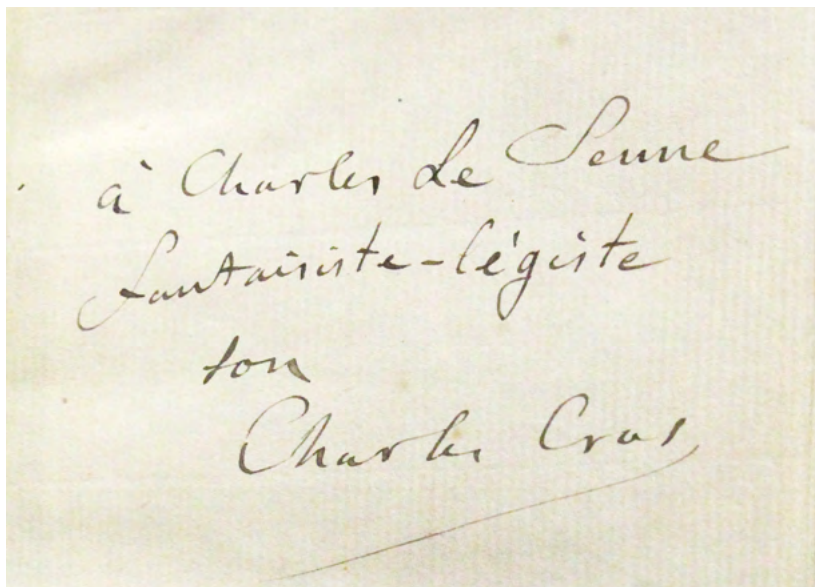 à Charles Le Senne
fantaisiste-légiste
ton
Charles Cros